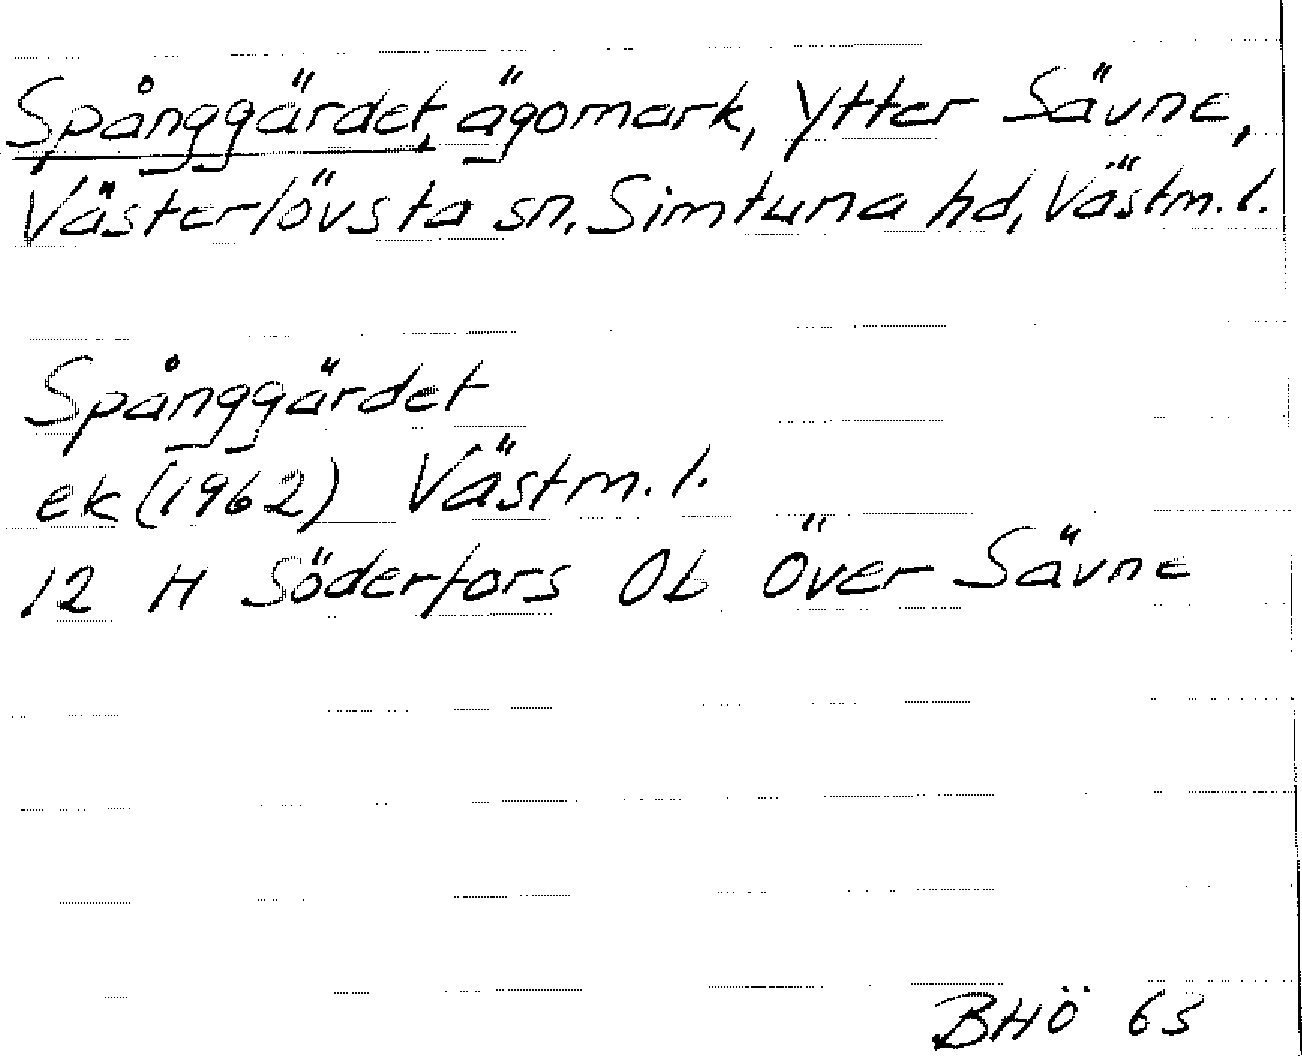 Spånggärdet, ägomark, Ytter Sävne,
Västerlövsta sn, Simtuna hd, Västm.l.
Spånggärdet
ek(1962) Västm.l.
12 H Söderfors 0b Över Sävne
BHÖ 63